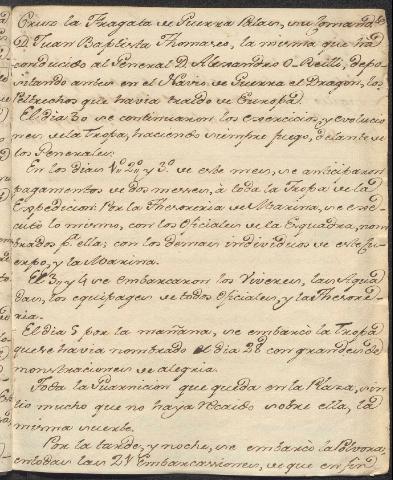 Cruzo la Fragata de Guerra Palas, su Comand.
D. Juan Baptista Thomaseo, la misma que ha
conducido al General D. Alexandro O-Reilli, depo
sitando antes en el Navio de Guerra el Dragon, los
Petrechos que havia traido de Europa.
El dia 30 se continuaron los exercicios, y evolucio
nes de la Tropa, haciendo siempre fuego, delante de
los Generales.
En los dias 1.º 2.º y 3.º de este mes, se anticiparon
pagamentos de dos meses, à toda la Tropa de la
Expedicion: Por la Thesoreria de Marina, se exe
cutò lo mismo, con los Oficiales de la Esquadra, nom
brados p.ª ella; con los demas individuos de este Cu
erpo, y la Marina.
El 3, y 4 se embarcaron los Viveres, las Agua
das, los equipages de todos Oficiales, y la Thesore
ria.
El dia 5 por la mañana, se embarcò la Tropa
que se havia nombrado el dia 28 con grandes de
monstraciones de alegria.
Toda la Guarnicion que queda en la Plaza, sin
tio mucho que no haya recaido sobre ella, la
misma suerte.
Por la tarde, y noche, se embarcò la Polvora,
en todas las 21 Embarcassiones, de que en fin